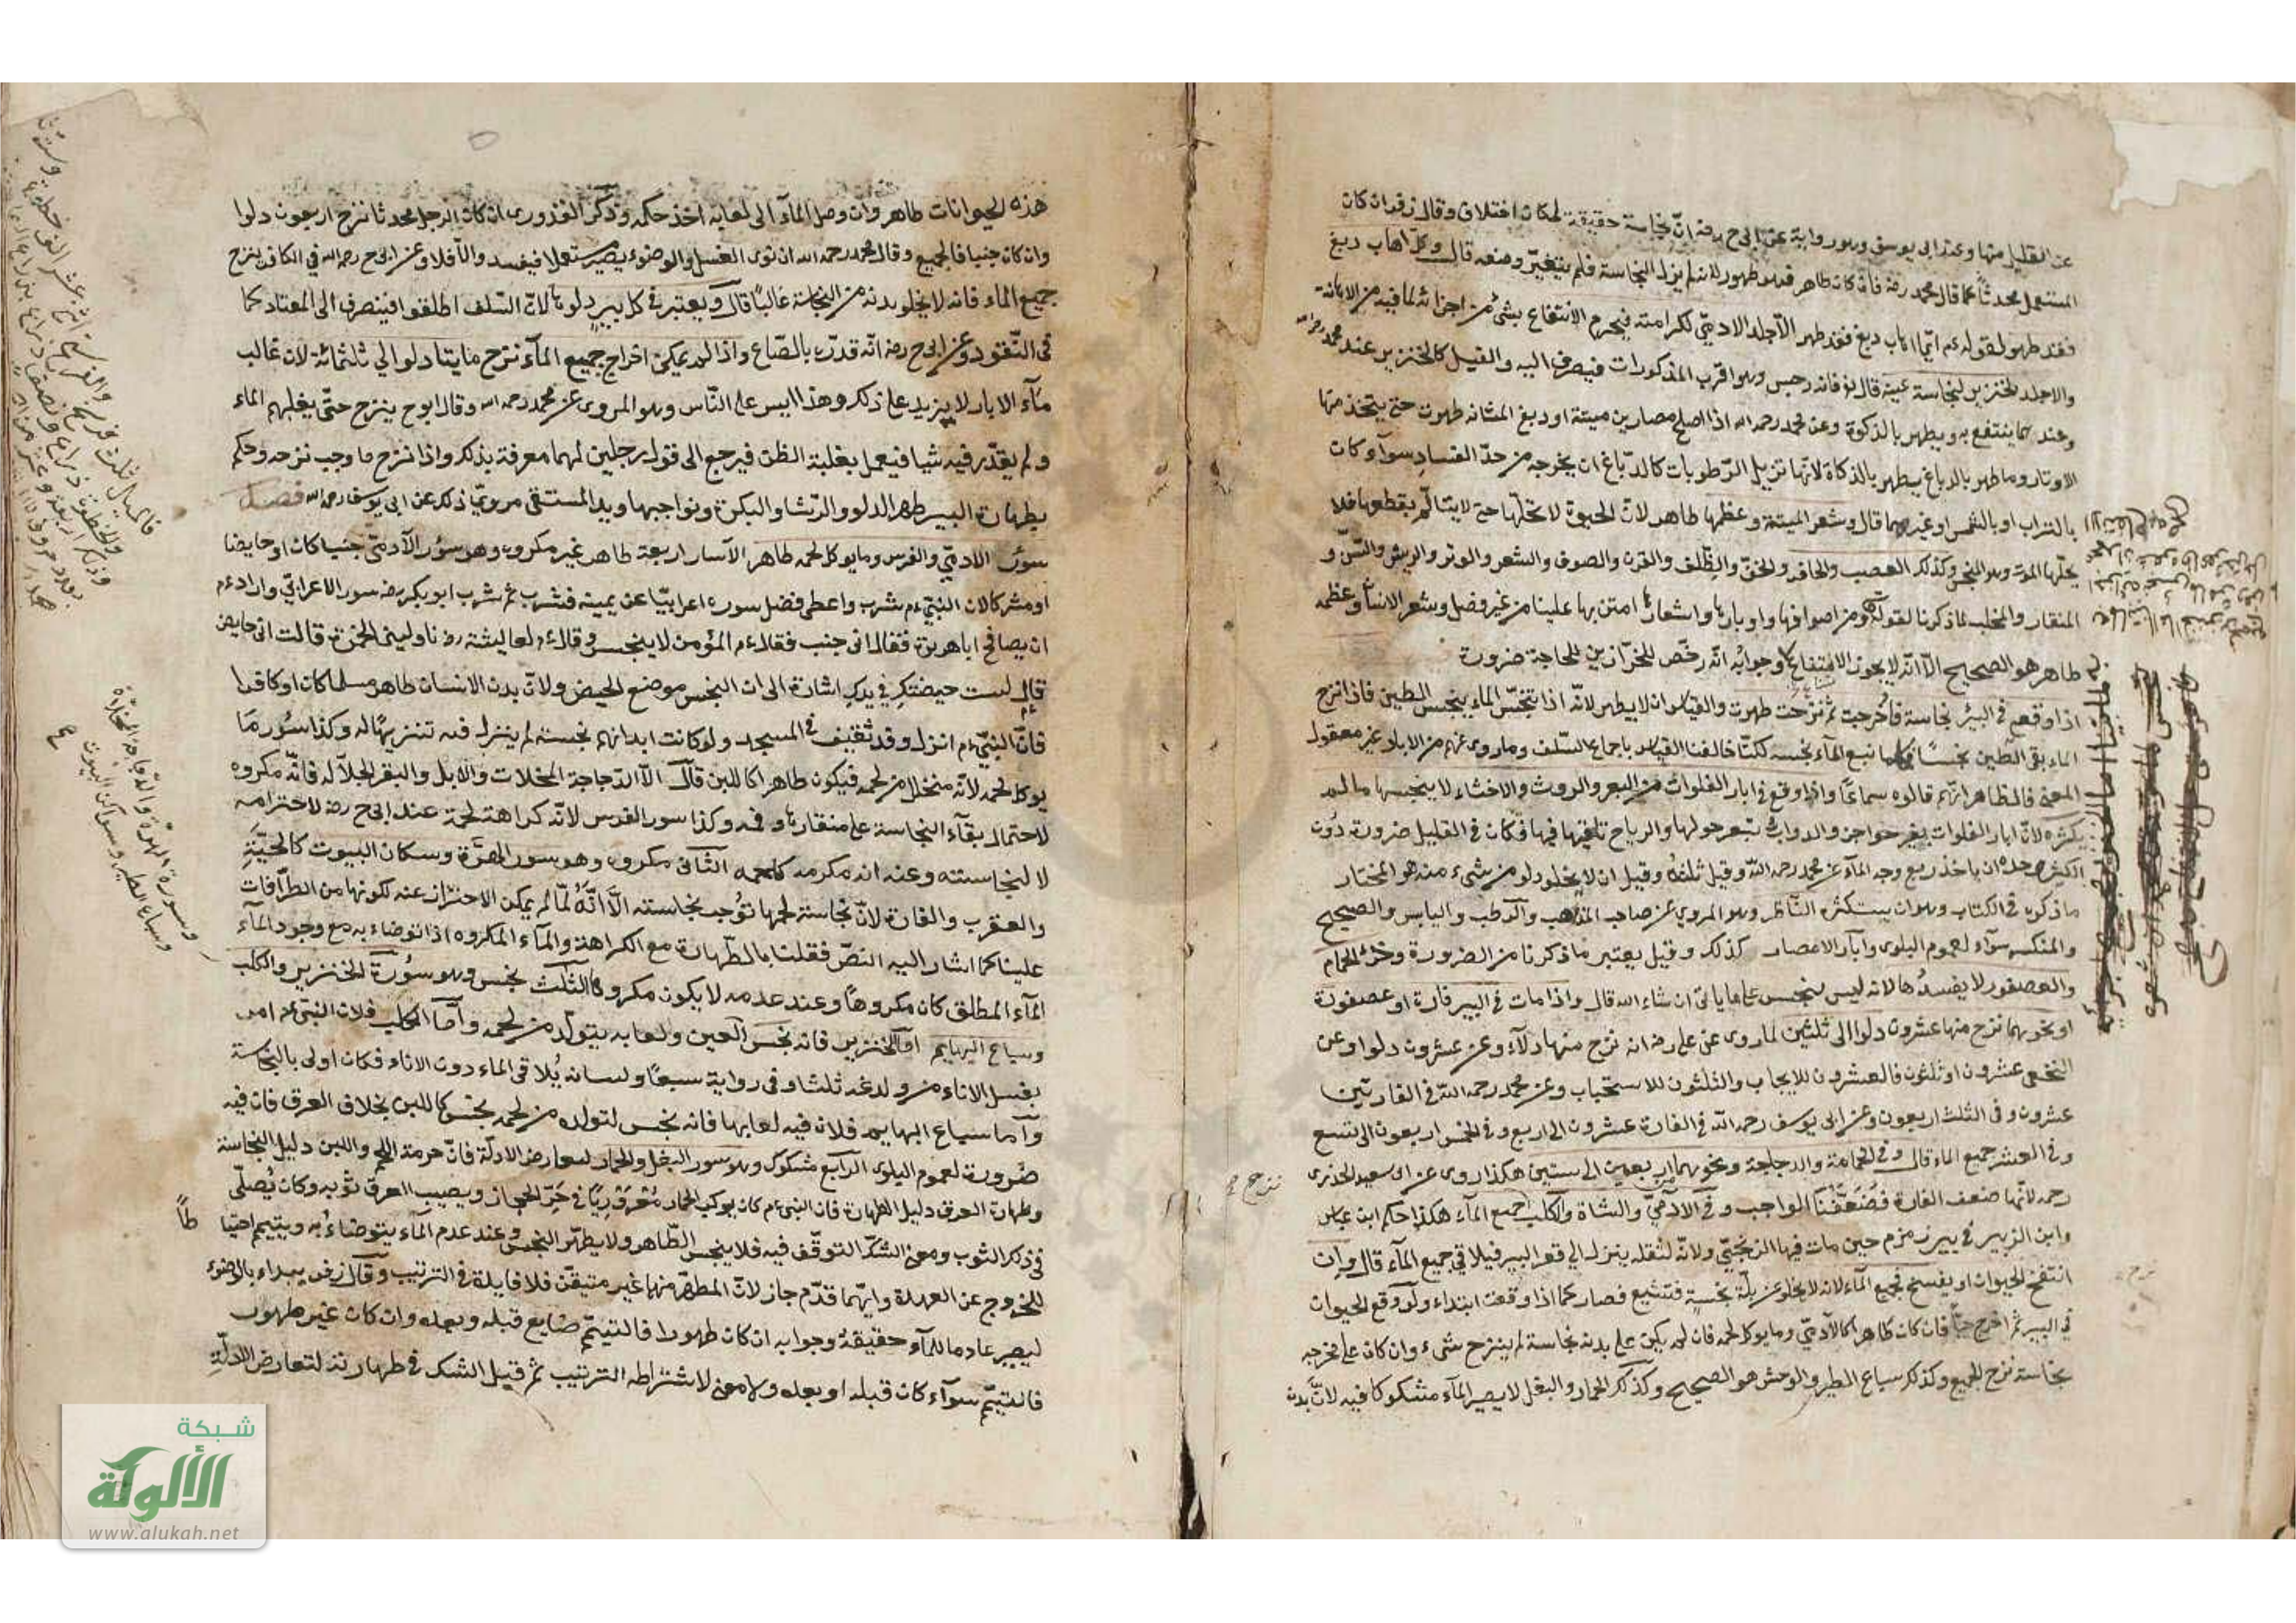 عن القليل منها وعند ابى يوسف وهو رواية عن ابى ح رضه انّ نجاسة حقيقة لمكان اختلاف وقال زفر ان كان
المستعمل محدثا كما قال محمد رضه فان كان طاهر فهو طهور لانه لم يزل النجاسة فلم يتغيّر وصفه قال وكلّ اهاب دبغ
فقد طهر لقوله عم ايّما اهاب دبغ فقد طهر الّا جلد الادميّ لكرامته فيحرم الانتفاع بشئ من اجزائه لما فيه من الاهانة
والا جلد الخنزير لنجاسة عينه قال تع فانه رجس وهو اقرب المذكورات فيصرف اليه والفيل كالخنزير عند محمد رحمه الله
وعند هما ينتفع به ويطهر بالذكوة وعن محمد رحمه الله اذا اصلح مصارين ميتة او دبغ المثانه طهرت حتى يتخذ منها
الاوتار وما طهر بالدباغ يطهر بالذكاة لانّها تزيل الرّطوبات كالدبّاغ ان يخرجه من حدّ الفساد سوآء كان
بالتراب او بالشمس او غيرهما قال وشعر الميتة وعظمها طاهر لانّ الحيوة لا تحلّها حتى لا يتالّم بقطعها فلا
يحلّها الموت وهو النجس وكذلك العصب والحافر والخفّ والظّلف والقرن والصوف والشعر والوبر والريش والسّنّ و
المنقار والمخلب لما ذكرنا لقوله تع ومن اصوافها واوبارها واشعارها امتن بها علينا من غير فصل وشعر الانسان وعظمه
طاهر هو الصحيح الّا انّه لا يجوز الانتفاع به وجوابه انّه رخّص للخرّازين للحاجة ضرورة
اذا وقع فى البئر نجاسة فاُخرجت ثم نزحت طهرت والقياس ان لا يطهر لانّه اذا تنجّس الماء ينجّس الطين فاذا نزح
الماء بقى الطّين نجسًا فكلما نبع المآء نجسه لكنّا خالفنا القياس باجماع السّلف وما روى عنهم من الاباد غير معقول
المعنى فالظاهر انّهم قالوه سماعًا واذا وقع فى ابار الفلوات من البعر والروث والاخثاء لا ينجسها ما لم
يكثره لانّ ابار الفلوات بغير حواجز والدواب تبعر حولها والرياح تلقيها فيها فكان فى القليل ضرورة دون
الكثير وحده ان ياخذ ربع وجه المآء عن محمد رحمه اللّه وقيل ثلثهُ وقيل ان لا يخلو دلو من شىء منه هو المختار
ما ذكره فى الكتاب وهو ان يستكثره النّاظر وهو المروى عن صاحب المذهب والرّطب واليابس والصحيح
والمنكسر سوآء لعموم البلوى وابآر الامصار كذلك وقيل يعتبر ما ذكرنا من الضرورة وخرء الحمام
والعصفور لا يفسدُها لانه ليس بنجس على ما ياتى ان شاء الله قال واذا مات فى البير فارة او عصفورة
او نحوهما نزح منها عشرون دلوا الى ثلثين لما روى عن على رضه انه نزح منها دلآء وعن عشرون دلوا وعن
النخعى عشرون او ثلثون فالعشرون للايجاب والثلثون للاستحباب وعن محمد رحمه اللّه فى الفارتين
عشرون وفى الثلث اربعون وعن ابى يوسف رحمه اللّه فى الفارة عشرون الى اربع وفى الخمس اربعون الى تسع
وفى العشر جميع الماء قال وفى الحمامة والدجاجة ونحوهما اربعين الى ستين هكذا روى عن ابى سعيد الخدرى
رحمه لانّها ضعف الفارة فضعّفنا الواجب وفى الآدميّ والشاة والكلب جميع المآء هكذا حكم ابن عباس
وابن الزبير فى بير زمزم حين مات فيها الزنجيّ ولانّه لثقله ينزل الى قعر البير فيلاقى جميع المآء قال وان
انتفخ الحيوان او يفسخ فجميع المآء لانه لا يخلو عن بلّة نجسة فتشيع فصار كما اذا وقعت ابتداء ولو وقع الحيوان
فى البير ثم اخرج حيّاً فان كان طاهرا كالآدميّ وما يوكل لحمه فان لم يكن على بدنه نجاسة لم ينزح شىء وان كان على مخرجه
نجاسة نزح الجميع وكذلك سباع الطير والوحش هو الصحيح وكذلك الحمار والبغل لا يصير المآء مشكوكا فيه لانّ بدن
نزح
هذه الحيوانات طاهر وان وصل المآء الى لعابه اخذ حكمه وذكر القدورى ان كان الرجل محدثا نزح اربعون دلوا
وان كان جنبا فالجميع وقال محمد رحمه الله ان نوى الغسل والوضوء يصير مستعملا فيفسد والّا فلا وعن ابى ح رحمه الله فى الكافر ينزح
جميع الماء فانه لا يخلو بدنه من النجاسة غالبًا قال ويعتبر فى كل بيرٍ دلوها لانّ السّلف اطلقوا فينصرف الى المعتاد كما
فى النّقود وعن ابى ح رضه انّه قدرّه بالصّاع واذا لم يمكن اخراج جميع المآء نزح مايتا دلو الى ثلثمائة لان غالب
مآء الابار لا يزيد على ذلك وهذا ايسر على النّاس وهو المروى عن محمد رحمه الله وقال ابو ح ينزح حتّى يغلبهم الماء
ولم يقدّر فيه شيا فيعمل بغلبة الظن فيرجع الى قول رجلين لهما معرفة بذلك واذا نزح ما وجب نزحه وحكم
بطهارة البير طهر الدلو والرّشا والبكرة ونواجبها ويد المستقى مروىّ ذلك عن ابى يوسف رحمه الله فصل
سؤر الادميّ والفرس وما يوكل لحمه طاهر الآسار اربعة طاهر غير مكروه وهو سؤر الآدميّ جنبا كان او حايضا
او مشركا لان النبيّ ءم شرب واعطى فضل سوره اعرابيّا عن يمينه فشرب ثم شرب ابو بكر رضه سور الاعرابيّ واراد ءم
ان يصافح ابا هريرة فقال انى جنب فقال ءم المؤمن لا ينجس وقال ءم لعايشة رضه ناولينى الخمرة قالت انى حايض
قال ليست حيضتك فى يدك اشارة الى ان النجس موضع الحيض ولانّ بدن الانسان طاهر مسلما كان او كافرا
فانّ النبيّ ءم انزل وفد ثقيف فى المسجد ولو كانت ابدانهم نجسته لم ينزل فيه تنزيهًا له وكذا سُور مَا
يوكل لحمه لانّه منحلل من لحمه فيكون طاهرا كاللبن قال الّا الدّجاجة المخلات والابل والبقر الجلّاله فانّه مكروه
لاحتمال بقآء النجاسة على منقارها وفمه وكذا سور الفرس لانّه كراهة لحمه عند ابى ح رضه لاحترامه
لا لنجاسته وعنه انه مكرمه كلحمه الثّانى مكروه وهو سور الهِرَّة وسكان البيوت كالحيّة
والعقرب والفارة لانّ نجاسة لحمها تُوجب نجاسته الاَّ انَّهُ لمّا لم يمكن الاحتراز عنه لكونها من الطوّافات
علينا كما اشار اليه النصّ فقلنا بالطّهارة مع الكراهة والمآء المكروه اذا توضاء به مع وجود المآء
المآء المطلق كان مكروهًا وعند عدمه لا يكون مكروها الثالث نجس وهو سُورة الخنزير والكلب
وسباع البهايم امّا الخنزير فانه نجس العين ولعابه يتولّد من لحمه وامّا الكلب فلان النبيّ عم امر
بغسل الاناء من ولوغه ثلثا وفى رواية سبعًا ولسانه يُلاقى الماء دون الاناء فكان اولى بالنجاسة
وامّا سباع البهايم فلان فيه لعابها فانه نجس لتولده من لحمه نجس كاللبن بخلاف العرق فان فيه
ضرورة لعموم البلوى الرّابع مشكوك وهو سور البغل والحمار لتعارض الادلّة فانّ حرمة اللحم واللبن دليل النجاسة
وطهارة العرق دليل الطهارة فان النبى ءم كان يركب الحمار مُعْرَوْرِيًا فى حَرِّ الحجاز ويصيب العرق ثوبه وكان يُصلّى
فى ذلك الثوب ومعنى الشكّ التوقّف فيه فلا ينجس الطّاهر ولا يطهّر النجس وعند عدم المآء يتوضاءُ به ويتيمم احتيا
طاً
للخروج عن العهدة وايّهما قدّم جاز لانّ المطهّر منهما غير متيقّن فلا فايدة فى الترتيب وقال زفر يبداء بالوضوء
ليصير عادما للمآء حقيقةً وجوابه ان كان طهورا فالتيمّم ضايع قبله وبعده وان كان غير طهور
فالتيمّم سوآء كان قبله او بعده ولا معنى لاشتراطه الترتيب ثم قيل الشك فى طهارته لتعارض الادلّةِ
وسورة الهرّة والدّجاجة المخلاّة
وسباع الطير وسواكن البيوت
شبكة
الألوكة
www.alukah.net